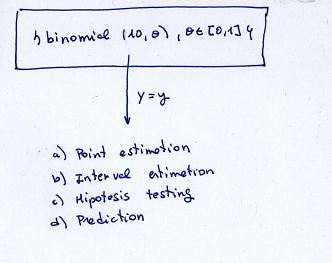 { binomial (10, θ) , θ ∈ [0,1] }
Y = y
a) Point estimation
b) Interval estimation
c) Hipotesis testing
d) Prediction